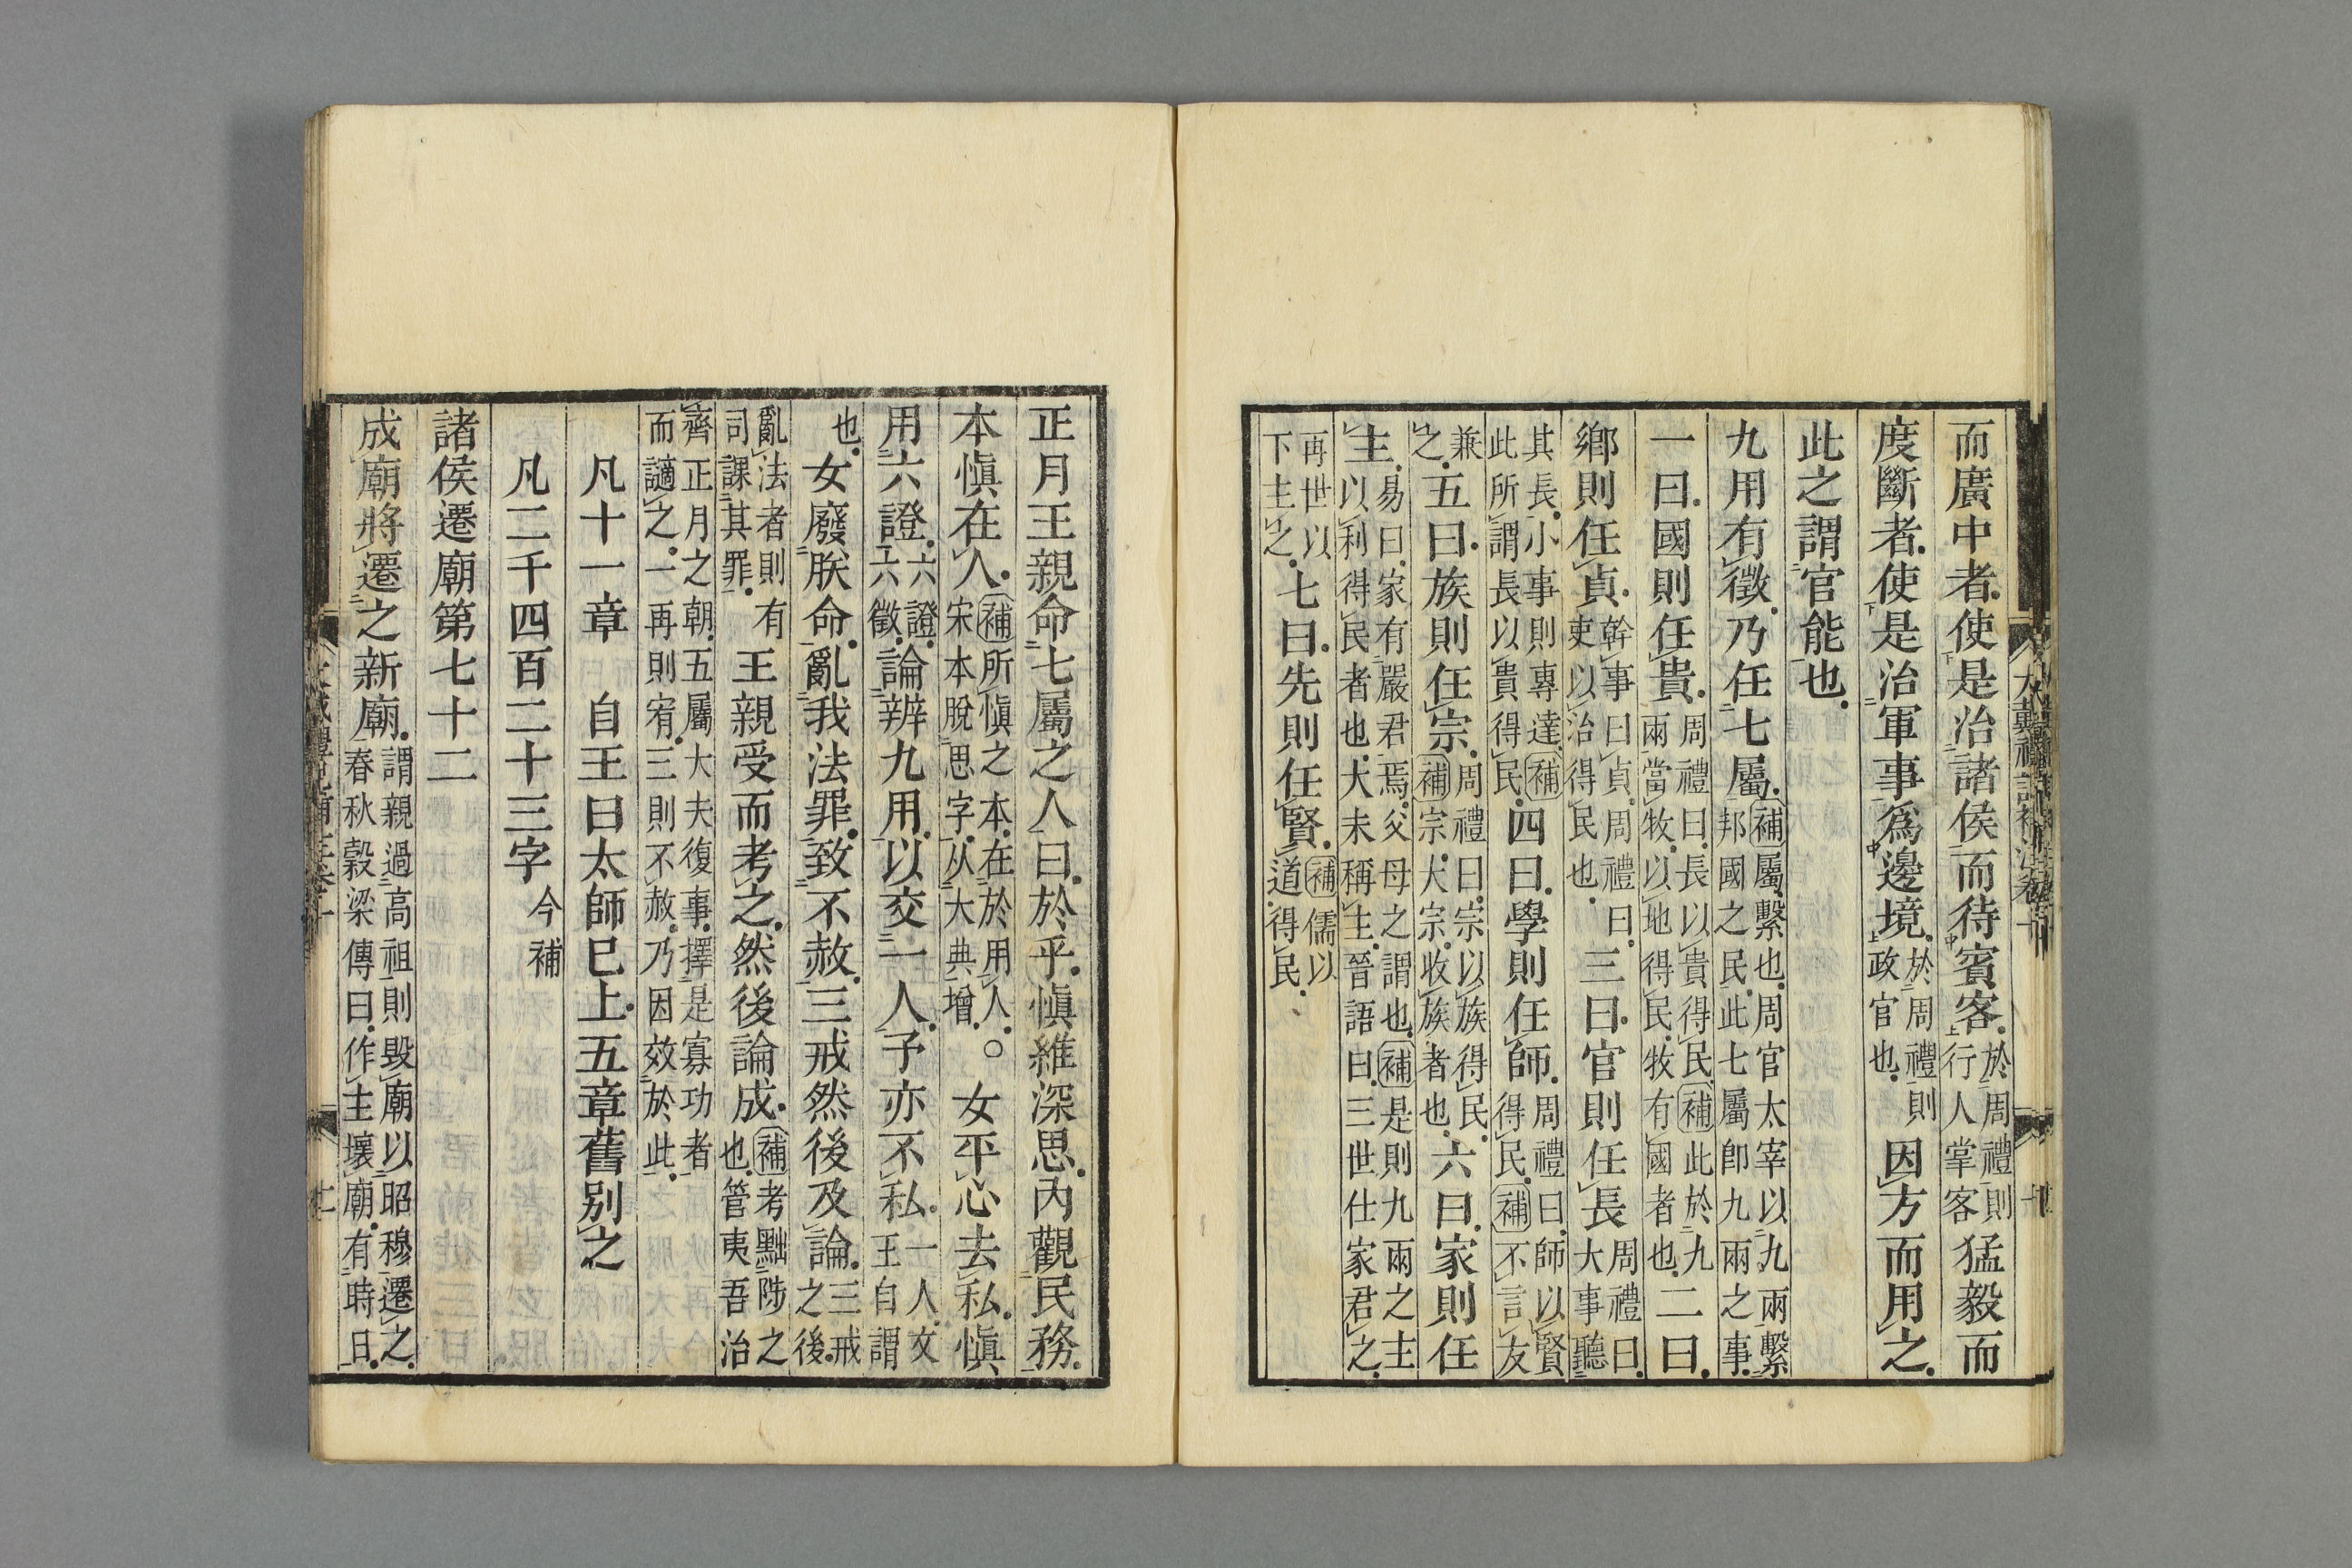 而廣中者使是治諸侯而待賓客於周禮則行人掌客猛毅而
度斷者使是治軍事爲邊境於周禮則政官也因方而用之
此之謂官能也
九用有徵乃任七屬補屬繫也周官太宰以九兩繫邦國之民此七屬卽九兩之事
一曰國則任貴周禮曰長以貴得民補此於九兩當牧以地得民牧有國者也二曰
鄉則任貞幹事曰貞周禮曰吏以治得民也三曰官則任長周禮曰大事聽
其長小事則專達補此所謂長以貴得民四曰學則任師周禮曰師以賢得民補不言友
兼之五曰族則任宗周禮曰宗以族得民補宗大宗收族者也六曰家則任
主易曰家有嚴君焉父母之謂也補是則九兩之主以利得民者也大未稱主晉語曰三世仕家君之
再世以下主之七曰先則任賢補儒以道得民
大戴禮記補注卷十
十
正月王親命七屬之人曰於乎愼維深思內觀民務
本愼在人補所愼之本在於用人宋本脫思字从大典增〇女平心去私愼
用六證六證六徵論辨九用以交一人予亦不私一人文王自謂
也女廢朕命亂我法罪致不赦三戒然後及論三戒之後
亂法者則有司課其罪王親受而考之然後論成補考黜陟之也管夷吾治
齊正月之朝五屬大夫復事擇是寡功者而讁之一再則宥三則不赦乃因效於此
凡十一章　自王曰太師巳上五章舊别之
凡二千四百二十三字今補
諸侯遷廟第七十二
成廟將遷之新廟謂親過高祖則毀廟以昭穆遷之春秋穀梁傳曰作主壞廟有時日